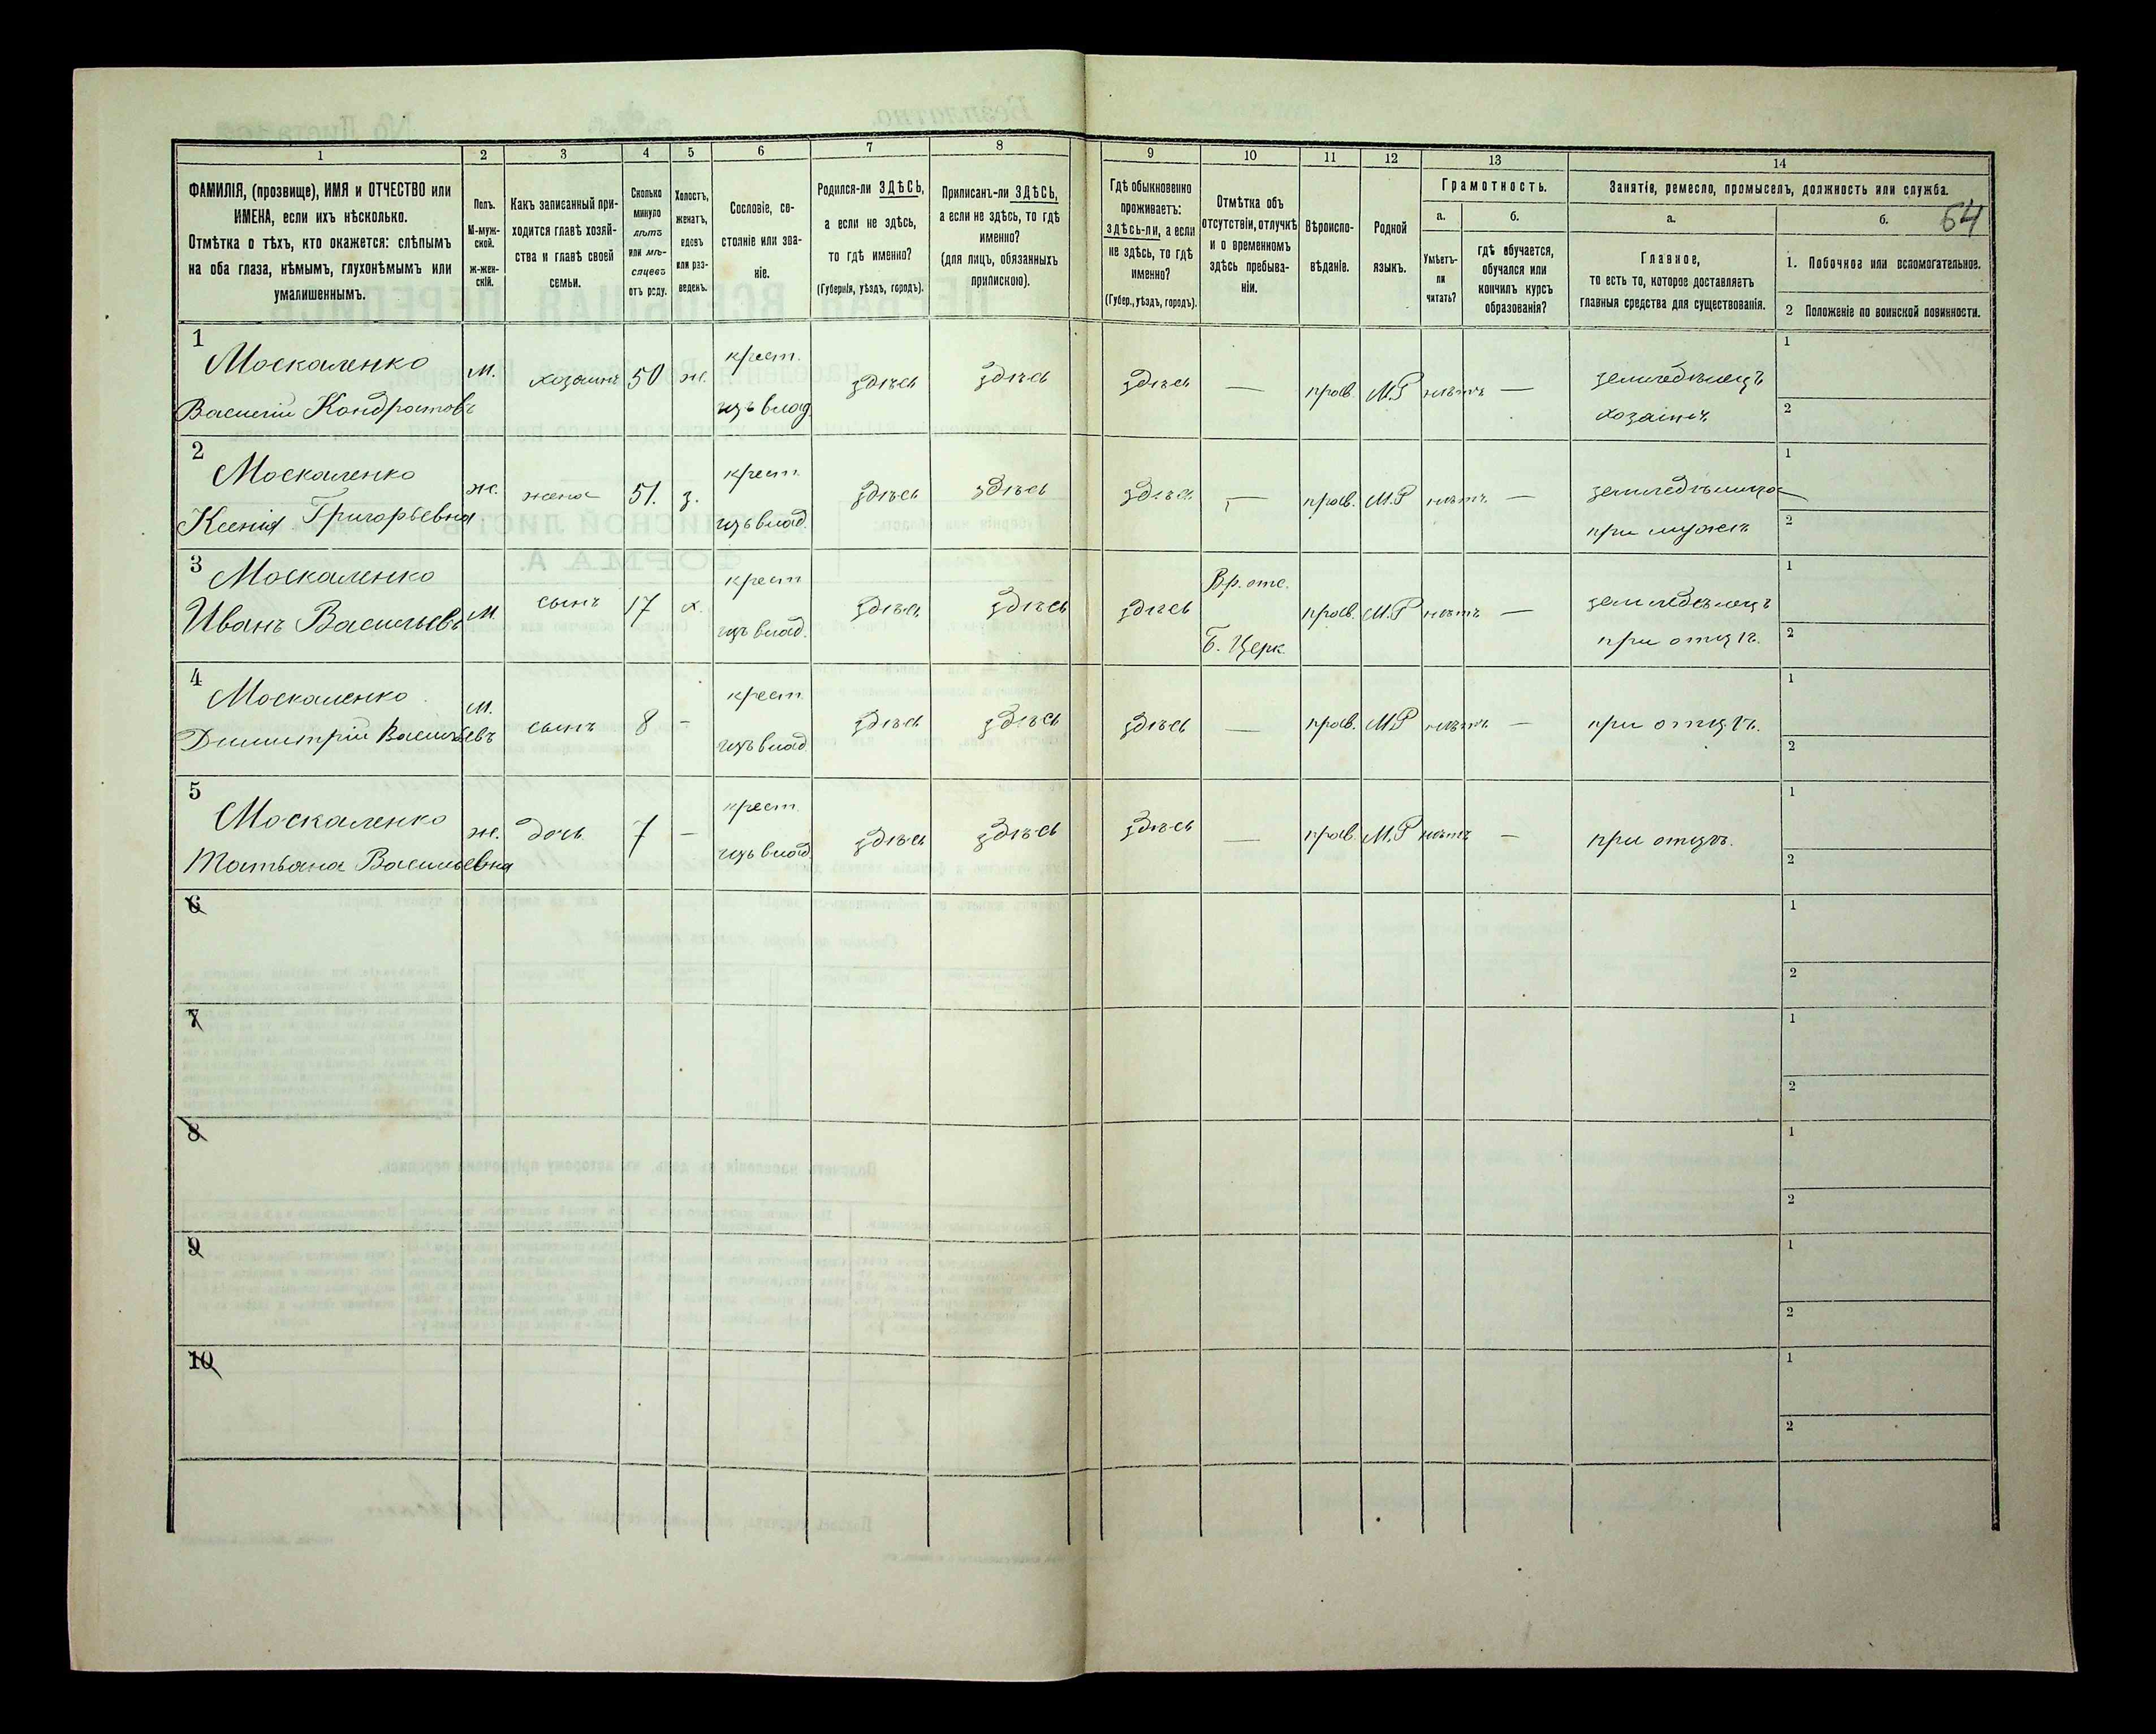 64
1 2 3 4 5 6 7 8 9 10 11 12 13 14
ФАМИЛІЯ, (прозвище), ИМЯ и ОТЧЕСТВО или
ИМЕНА, если ихъ нѣсколько.
Отмѣтка о тѣхъ, кто окажется: слѣпымъ
на оба глаза, нѣмымъ, глухонѣмымъ или
умалишеннымъ.
Полъ.
М-муж-
ской.
ж-жен-
скій.
Какъ записанный при-
ходится главѣ хозяй-
ства и главѣ своей
семьи.
Сколько
минуло
лѣтъ
или мѣ-
сяцевъ
отъ роду.
Холостъ,
женатъ,
вдовъ
или раз-
веденъ.
Сословіе, со-
стояніе или зва-
ніе.
Родился-ли ЗДѢСЬ,
а если не здѣсь,
то гдѣ именно?
(Губернія, уѣздъ, городъ).
Приписанъ-ли ЗДѢСЬ,
а если не здѣсь, то гдѣ
именно?
(для лицъ, обязанныхъ
припискою).
Гдѣ обыкновенно
проживаетъ:
здѣсь-ли, а если
не здѣсь, то гдѣ
именно?
(Губер., уѣздъ, городъ).
Отмѣтка объ
отсутствіи, отлучкѣ
и о временномъ
здѣсь пребыва-
ніи.
Вѣроиспо-
вѣданіе.
Родной
языкъ.
Грамотность.
а.
Умѣетъ-
ли
читать?
б.
гдѣ обучается,
обучался или
кончилъ курсъ
образованія?
Занятіе, ремесло, промыселъ, должность или служба.
а.
Главное,
то есть то, которое доставляетъ
главныя средства для существованія.
б.
1. Побочное или вспомогательное.
2 Положеніе по воинской повинности.
1
Москаленко
Василій Кондратовъ
м. хозяинъ 50 ж.
крест.
изъ влад.
здѣсь здѣсь здѣсь — прав. М.Р нѣтъ —
земледѣлецъ
хозяинъ
1
2
2
Москаленко
Ксенія Григорьевна
ж. жена 51. з.
крест.
изъ влад.
здѣсь здѣсь здѣсь — прав. М.Р нѣтъ —
земледѣлица
при мужѣ
1
2
3
Москаленко
Иванъ Васильевъ
М сынъ 17 х.
крест
изъ влад.
здѣсь здѣсь здѣсь
Вр. отс.
Б. Церк.
прав. М.Р нѣтъ —
земледѣлецъ
при отцѣ.
1
2
4
Москаленко
Димитрій Васильевъ
м. сынъ 8 -
крест.
изъ влад.
здѣсь здѣсь здѣсь — прав. М.Р нѣтъ — при отцѣ.
1
2
5
Москаленко
Татьяна Васильевна
ж. дочь 7 —
крест.
изъ влад.
здѣсь здѣсь здѣсь — прав. М.Р нѣтъ — при отцѣ.
1
2
6
1
2
7
1
2
8
1
2
9
1
2
10
1
2